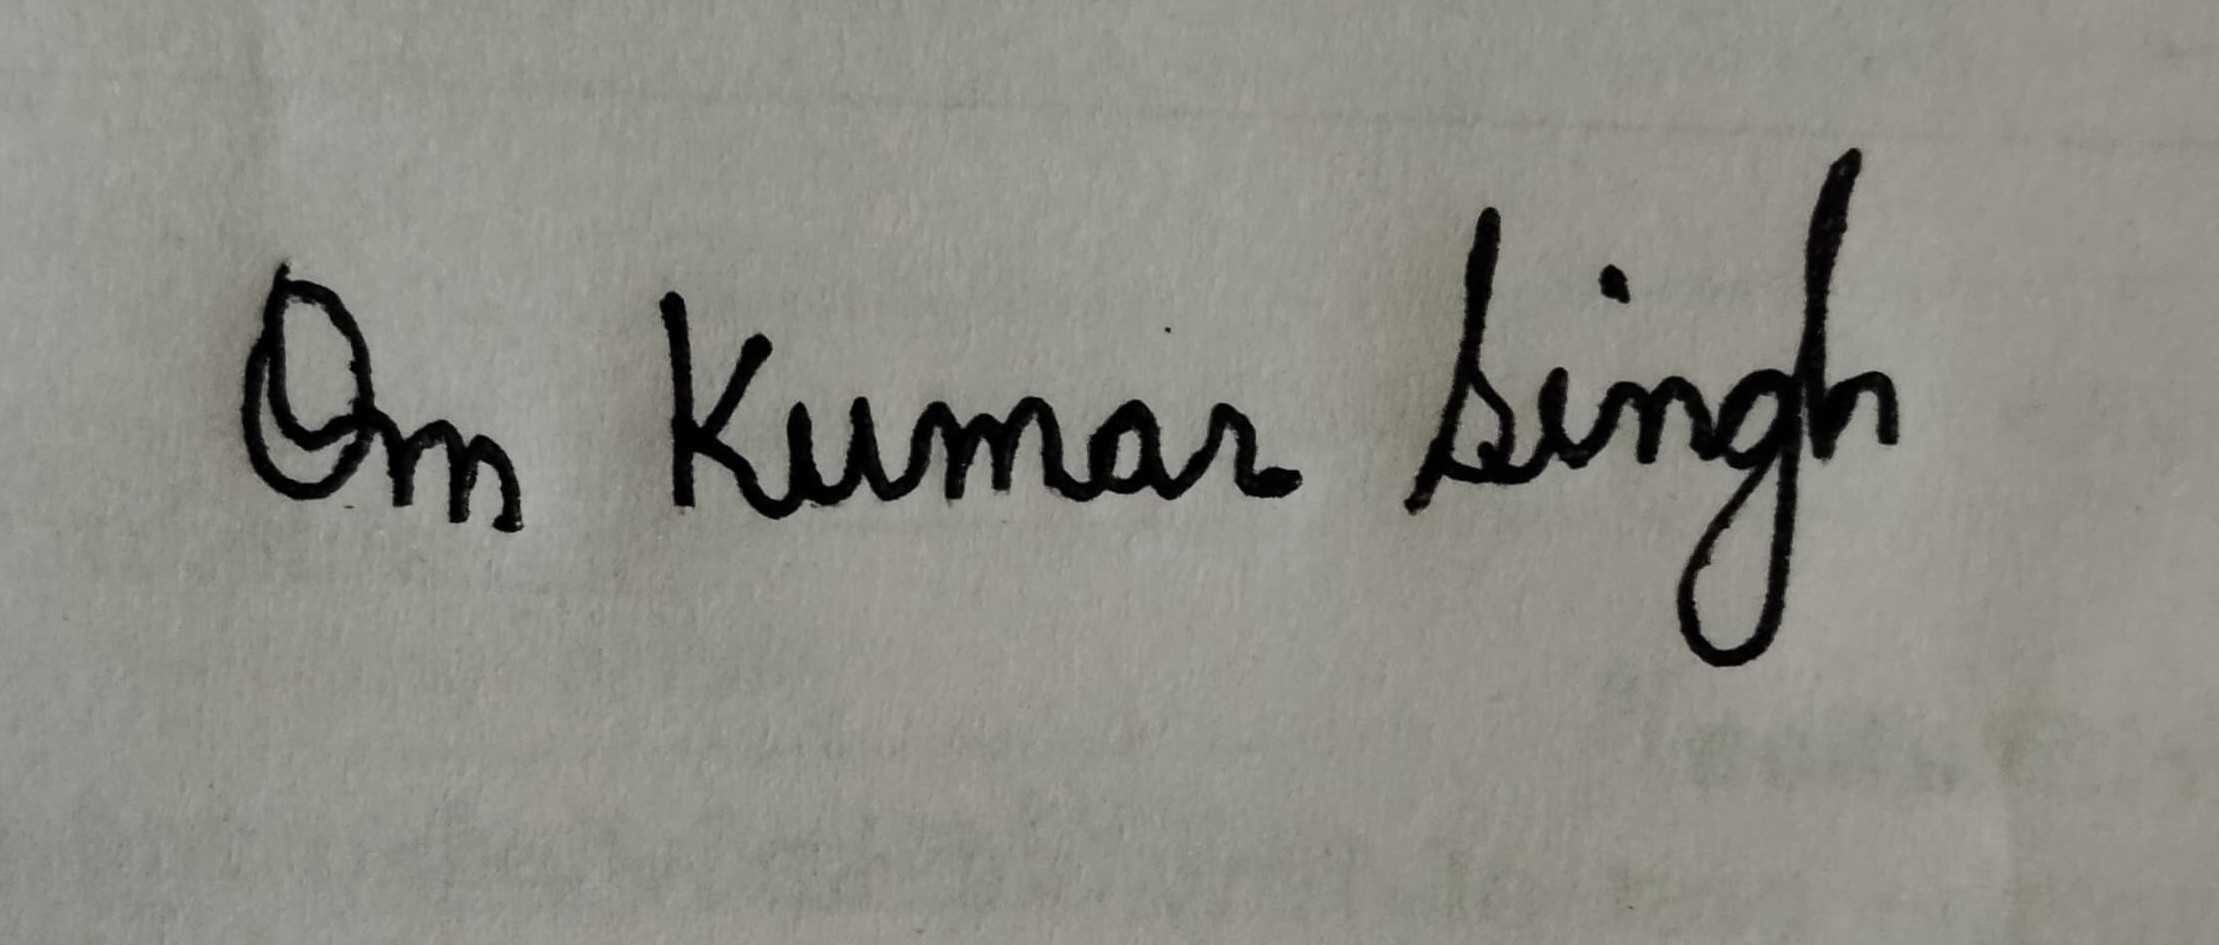 Om Kumar Singh